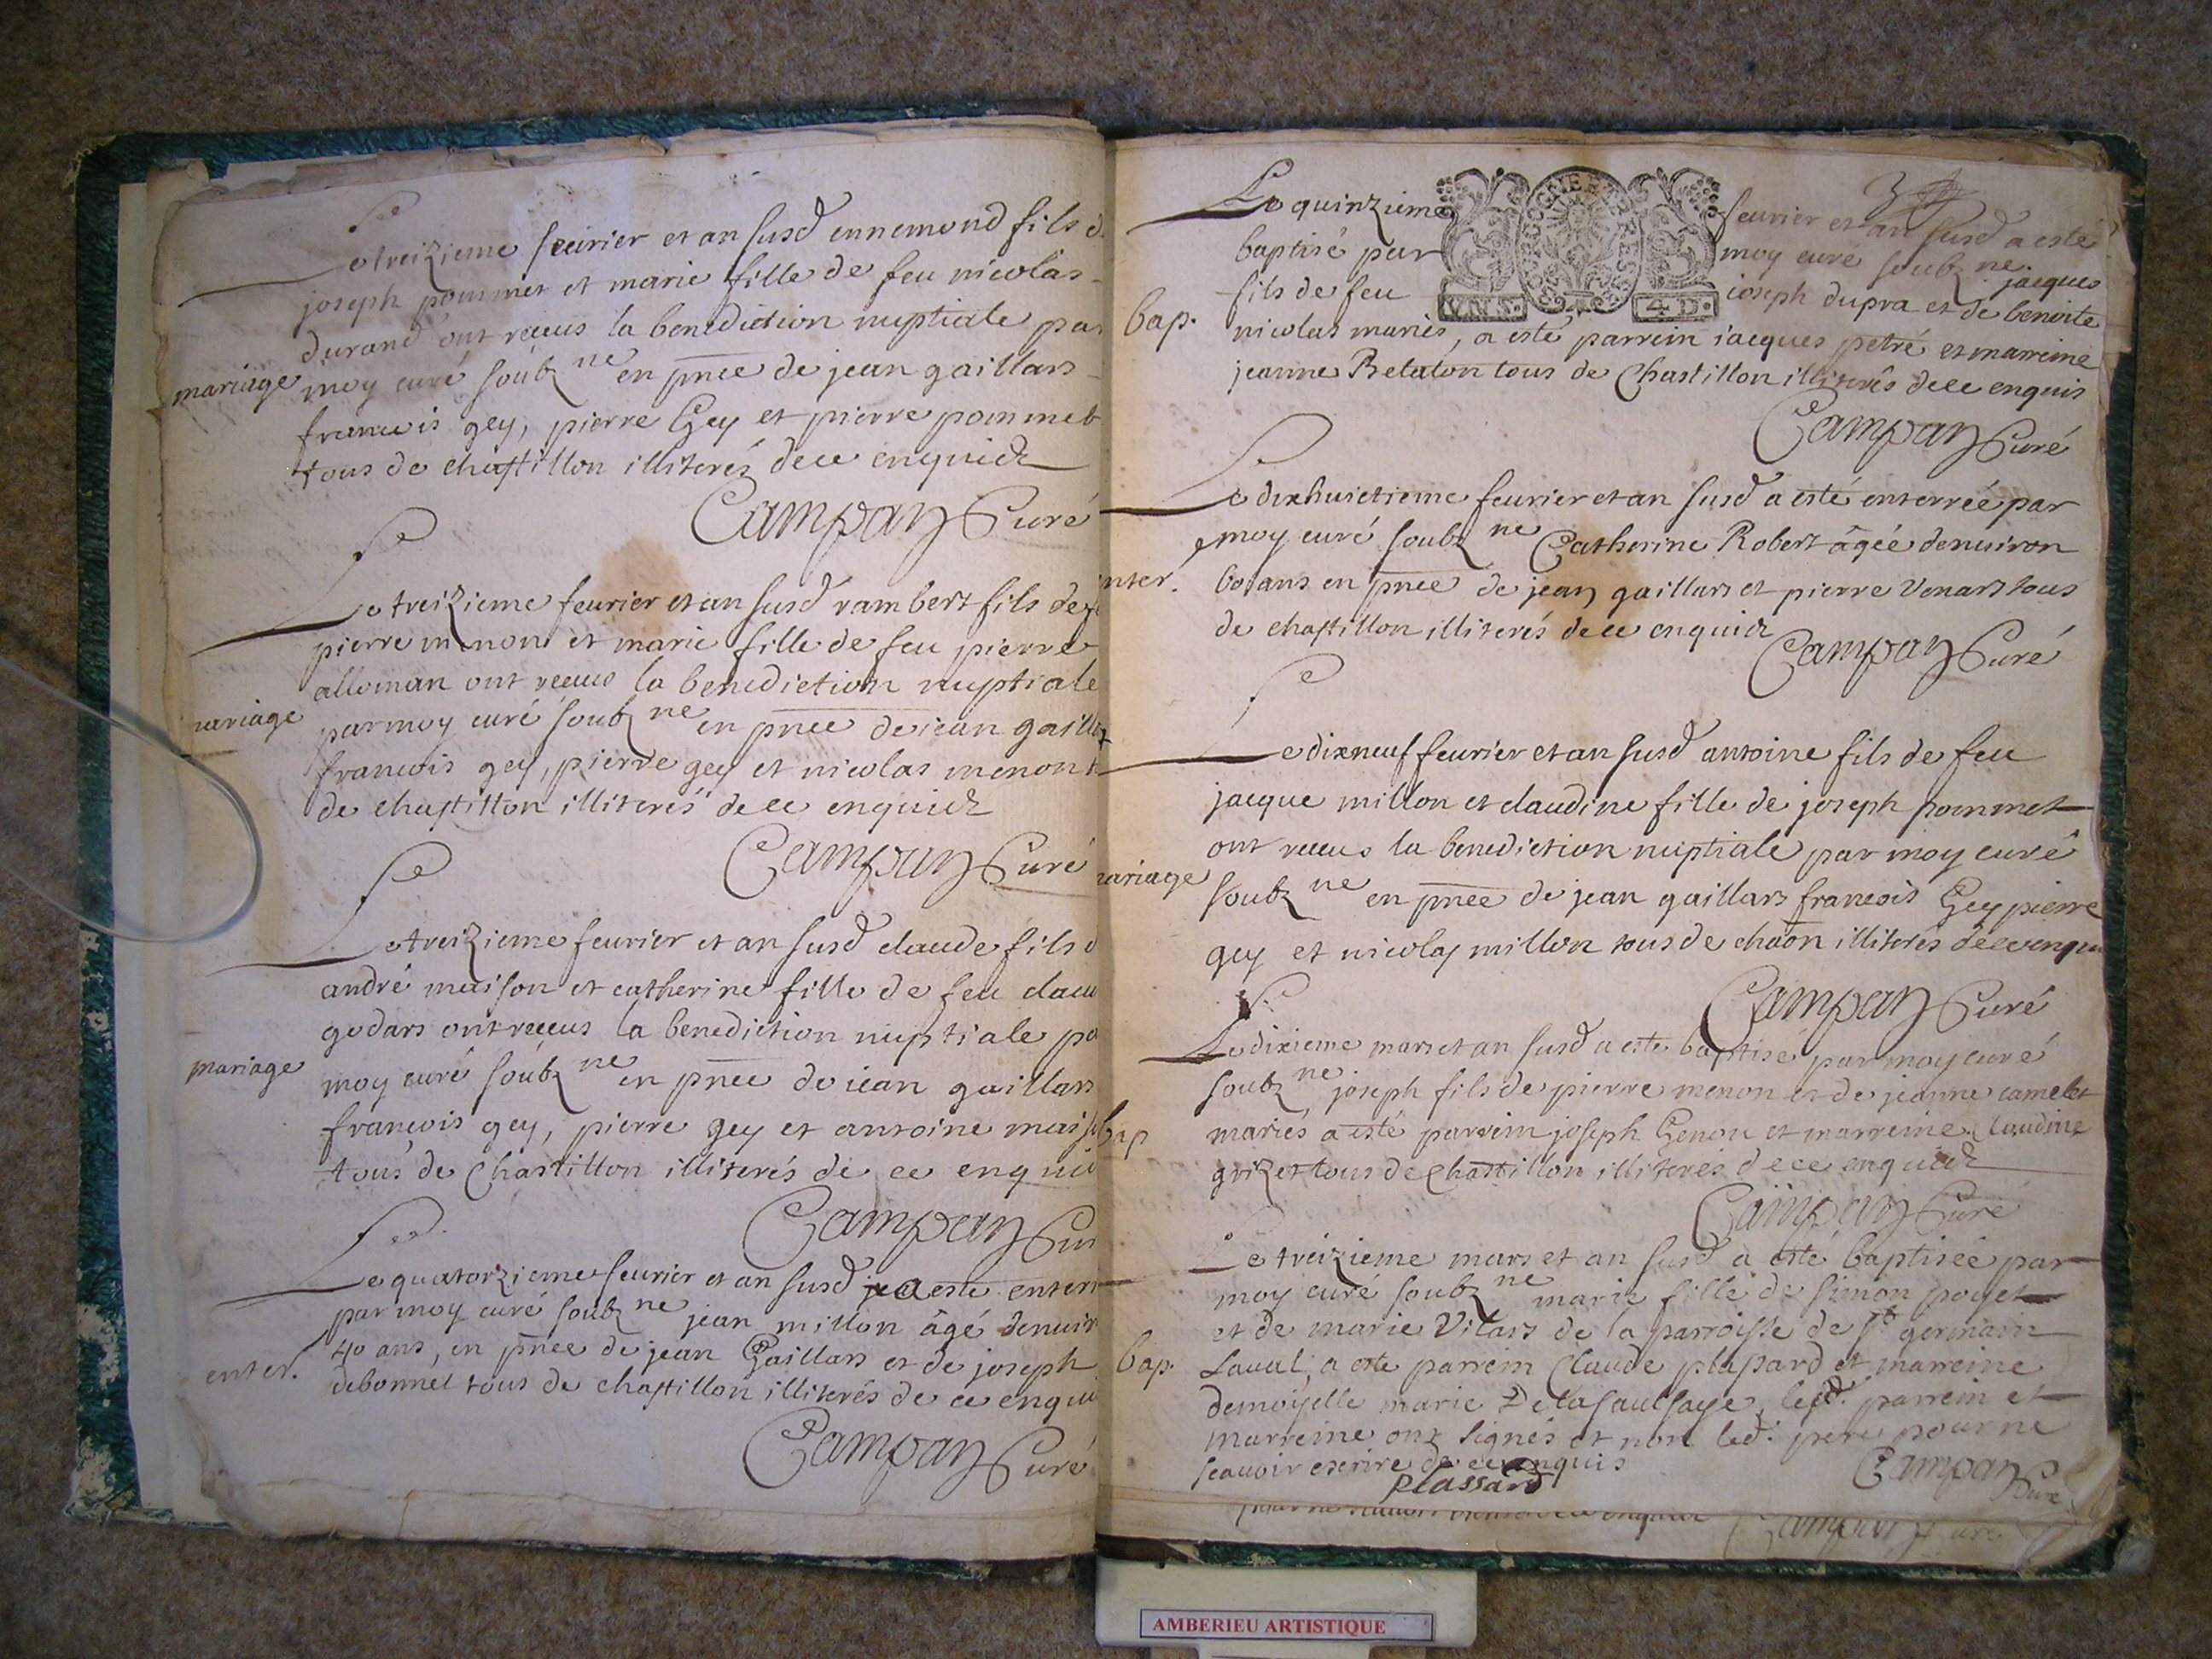 Le treizieme feurier et an susd ennemond fils d
joseph pommet et marie fille de feu nicolas
durand ont receus la benediction nuptiale par
mariage
moy curé soubz ne en pnce de jean gaillars
francois gey, pierre Gey et pierre pommet
tous de chastillon illiterés de ce enquicz
Campan Curé
Le treizieme feurier et an susd rambert fils de fe
pierre menon et marie fille de feu pierre
alloman ont receus la benediction nuptiale
mariage
par moy curé soubz ne en pnce de iean gaillar
francois gey, pierre gey et nicolas menon t
de chastillon illiterés de ce enquicz
Campan Curé
Le treizieme feurier et an susd claude fils d
andré maison et catherine fille de feu clau
godars ont receus la benediction nuptiale pa
mariage
moy curé soubz ne en pnce de iean gaillars
francois gey, pierre gey et antoine mais
tous de Chastillon illiterés de ce enqui
Campan Cur
Le quatorzieme feurier et an susd a esté enterr
par moy curé soubz ne jean millon âgé denuir
enter.
40 ans, en pnce de jean Gaillars et de joseph
debonnel tous de chastillon illiterés de ce enqui
Campan Curé
3
Le quinzieme feurier et an susd a esté
baptisé par moy curé soubz ne jacques
fils de feu joseph dupra et de benoite
VN S. 4 D.
bap.
nicolas mariés, a esté parrein iacques petré et marreine
jeanne Relaton tous de Chastillon illiterés de ce enquis
Campan Curé
Le dixhuictieme feurier et an susd a esté enterrée par
moy curé soubz ne Catherine Robert âgée denuiron
enter.
60 ans en pnce de jean gaillars et pierre Venars tous
de chastillon illiterés de ce enquicz
Campan Curé
Le dixneuf feurier et an susd antoine fils de feu
jacque millon et claudine fille de joseph pommet
ont receus la benediction nuptiale par moy curé
mariage
soubz ne en pnce de jean gaillars francois Gey pierre
gey et nicolas millon tous de chaon illiterés de ce enqui
Campan Curé
Le dixieme mars et an susd a esté baptisé par moy curé
soubz ne joseph fils de pierre menon et de jeanne camelet
bap
mariés a esté parrein joseph Genou et marreine Claudine
grizet tous de Chastillon illiterés de ce enquicz
Campan Curé
Le treizieme mars et an susd a esté baptisée par
moy curé soubz ne marie fille de simon poget
et de marie Vilars de la parroisse de st germain
bap.
Laual, a esté parrein Claude plassard et marreine
demoiselle marie Delasaulsaye, lesd. parrein et
marreine ont signés et non led. pere pour ne
scauoir escrire de ce enquis
Plassard
Campan Curé
Campan Curé
AMBERIEU ARTISTIQUE